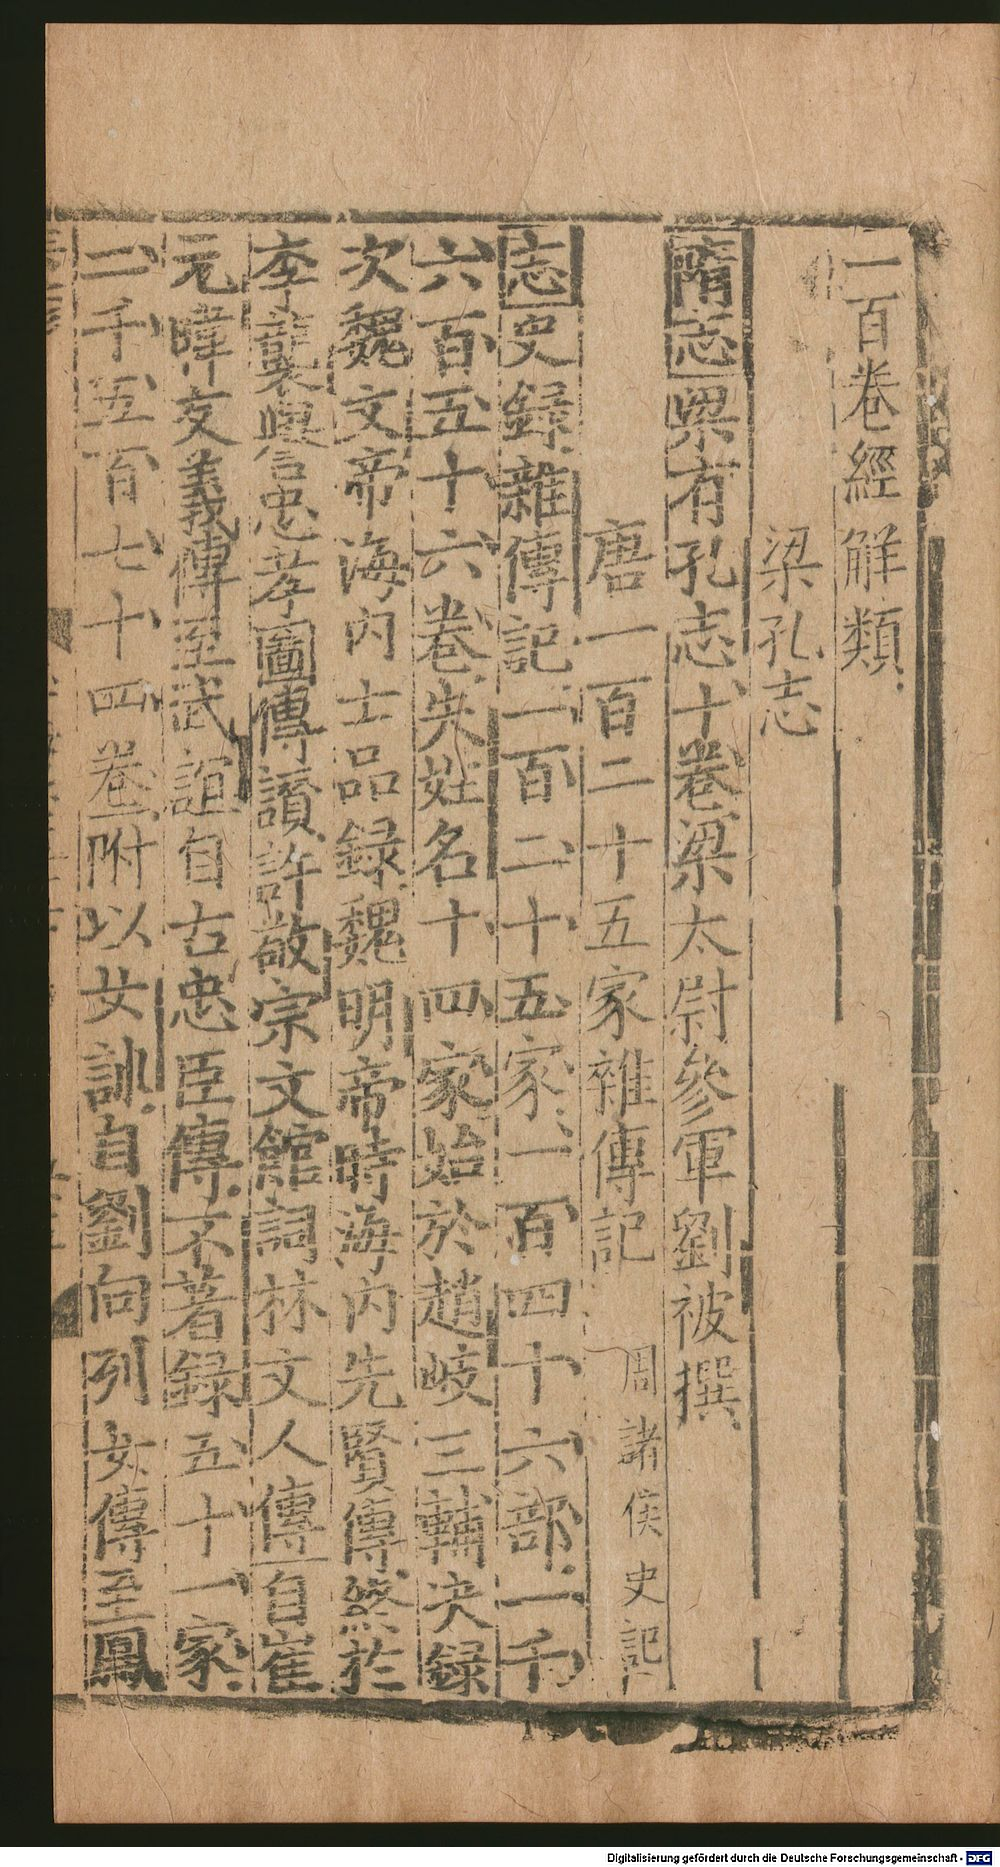 一百卷經解類
梁孔志
隋志梁有孔志十卷梁太尉參軍劉被撰
唐一百二十五家雜傳記 周諸侯史記
志史錄雜傳記一百二十五家一百四十六部一千
六百五十六卷失姓名十四家始於趙岐三輔決録
次魏文帝海內士品録魏明帝時海內先賢傳終於
李襲譽忠孝圖傳讚許敬宗文館詞林文人傳自崔
元暐友義傳至武誼自古忠臣傳不著録五十一家
二千五百七十四卷附以女訓自劉向列女傳至鳳
Digitalisierung gefördert durch die Deutsche Forschungsgemeinschaft - DFG